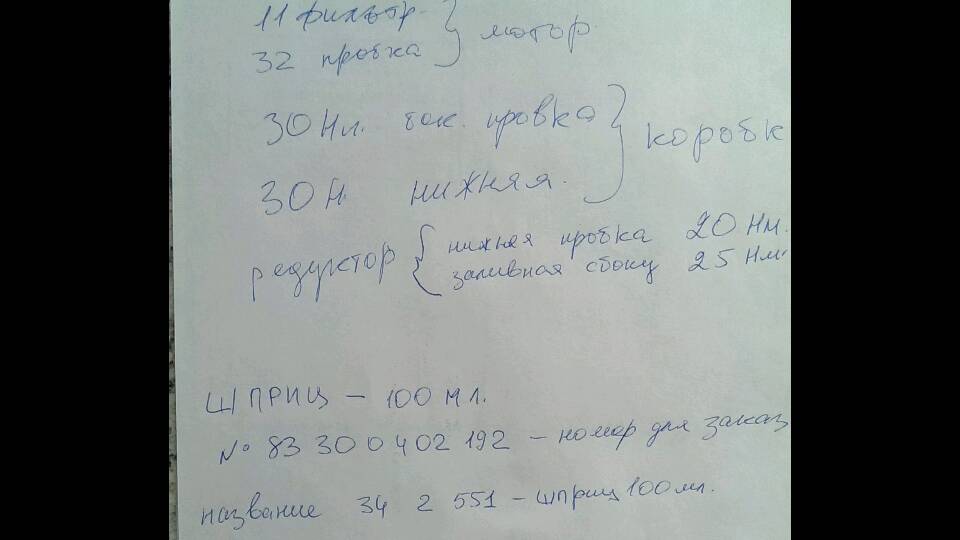 11 фильтр.
32 пробка } мотор
30 Нм. бок. пробка
30 Н. нижняя. } коробк
редуктор { нижняя пробка 20 Нм.
заливная сбоку 25 Нм.
ШПРИЦ – 100 мл.
№ 83 300 402 192 – номер для заказ
название 34 2 551 – шприц 100 мл.